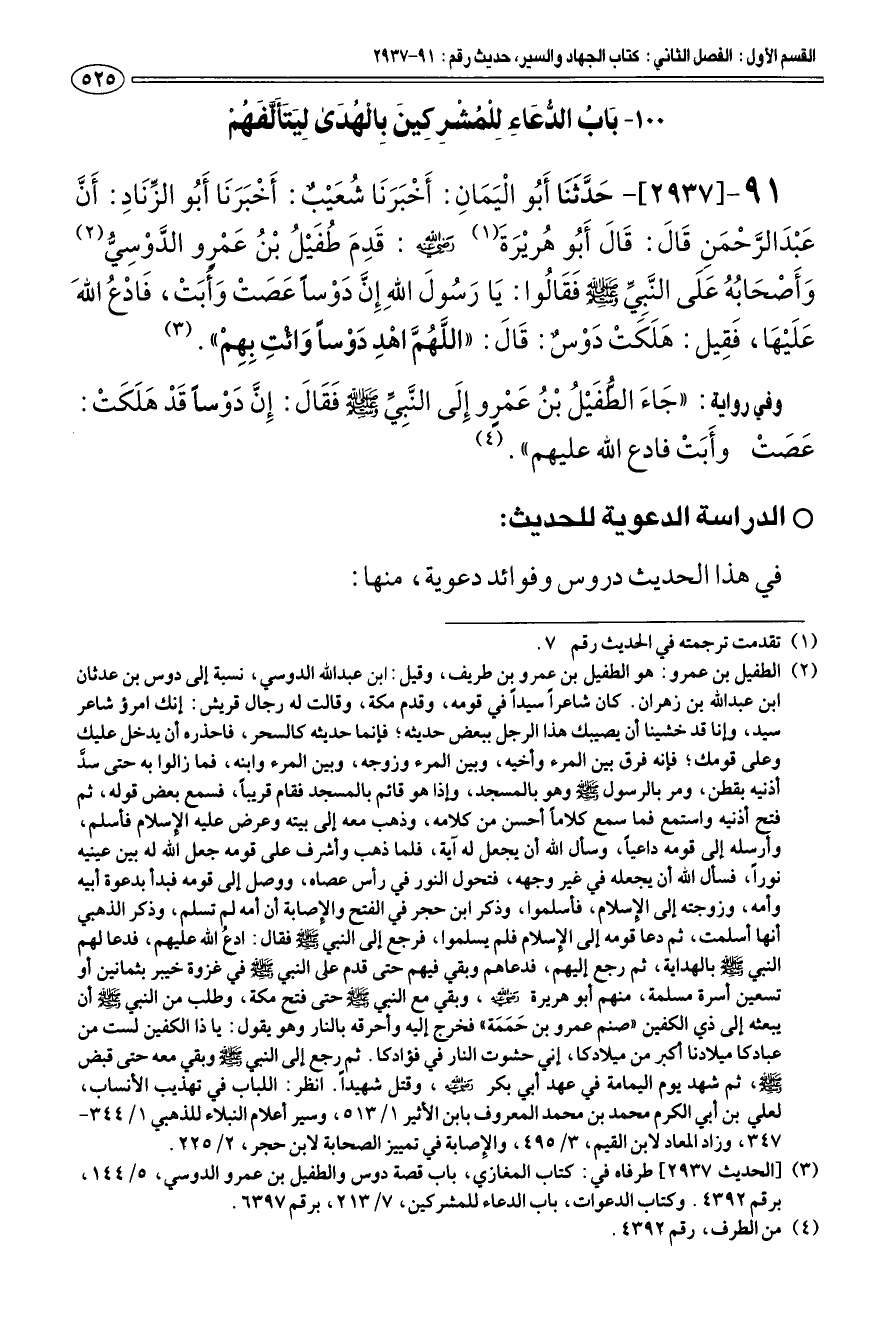 القسم الأول: الفصل الثاني: كتاب الجهاد والسير، حديث رقم: ٩١-٢٩٣٧
٥٢٥
١٠٠- بَابُ الدُّعَاءِ لِلْمُشْرِكِينَ بِالْهُدَىٰ لِيَتَأَلَّفَهُمْ
٩١-[٢٩٣٧]- حَدَّثَنَا أَبُو الْيَمَانِ: أَخْبَرَنَا شُعَيْبٌ: أَخْبَرَنَا أَبُو الزِّنَادِ: أَنَّ
عَبْدَالرَّحْمَنِ قَالَ: قَالَ أَبُو هُرَيْرَةَ(١) رضي الله عنه: قَدِمَ طُفَيْلُ بْنُ عَمْرٍو الدَّوْسِيُّ(٢)
وَأَصْحَابُهُ عَلَى النَّبِيِّ ﷺ فَقَالُوا: يَا رَسُولَ اللهِ إِنَّ دَوْساً عَصَتْ وَأَبَتْ، فَادْعُ اللهَ
عَلَيْهَا، فَقِيل: هَلَكَتْ دَوْسٌ: قَالَ: «اللَّهُمَّ اهْدِ دَوْساً وَائْتِ بِهِمْ».(٣)
وفي رواية: «جَاءَ الطُّفَيْلُ بْنُ عَمْرٍو إِلَى النَّبِيِّ ﷺ فَقَالَ: إِنَّ دَوْساً قَدْ هَلَكَتْ:
عَصَتْ وأَبَتْ فادع الله عليهم».(٤)
○ الدراسة الدعوية للحديث:
في هذا الحديث دروس وفوائد دعوية، منها:
(١) تقدمت ترجمته في الحديث رقم ٧.
(٢) الطفيل بن عمرو: هو الطفيل بن عمرو بن طريف، وقيل: ابن عبدالله الدوسي، نسبة إلى دوس بن عدثان
ابن عبدالله بن زهران. كان شاعراً سيداً في قومه، وقدم مكة، وقالت له رجال قريش: إنك امرؤ شاعر
سيد، وإنا قد خشينا أن يصيبك هذا الرجل ببعض حديثه؛ فإنما حديثه كالسحر، فاحذره أن يدخل عليك
وعلى قومك؛ فإنه فرق بين المرء وأخيه، وبين المرء وزوجه، وبين المرء وابنه، فما زالوا به حتى سدَّ
أذنيه بقطن، ومر بالرسول ﷺ وهو بالمسجد، وإذا هو قائم بالمسجد فقام قريباً، فسمع بعض قوله، ثم
فتح أذنيه واستمع فما سمع كلاماً أحسن من كلامه، وذهب معه إلى بيته وعرض عليه الإسلام فأسلم،
وأرسله إلى قومه داعياً، وسأل الله أن يجعل له آية، فلما ذهب وأشرف على قومه جعل الله له بين عينيه
نوراً، فسأل الله أن يجعله في غير وجهه، فتحول النور في رأس عصاه، ووصل إلى قومه فبدأ بدعوة أبيه
وأمه، وزوجته إلى الإسلام، فأسلموا، وذكر ابن حجر في الفتح والإصابة أن أمه لم تسلم، وذكر الذهبي
أنها أسلمت، ثم دعا قومه إلى الإسلام فلم يسلموا، فرجع إلى النبي ﷺ فقال: ادعُ الله عليهم، فدعا لهم
النبي ﷺ بالهداية، ثم رجع إليهم، فدعاهم وبقي فيهم حتى قدم على النبي ﷺ في غزوة خيبر بثمانين أو
تسعين أسرة مسلمة، منهم أبو هريرة رضي الله عنه، وبقي مع النبي ﷺ حتى فتح مكة، وطلب من النبي ﷺ أن
يبعثه إلى ذي الكفين «صنم عمرو بن حَمَمَة» فخرج إليه وأحرقه بالنار وهو يقول: يا ذا الكفين لست من
عبادكا ميلادنا أكبر من ميلادكا، إني حشوت النار في فؤادكا. ثم رجع إلى النبي ﷺ وبقي معه حتى قبض
ﷺ، ثم شهد يوم اليمامة في عهد أبي بكر رضي الله عنه، وقتل شهيداً. انظر: اللباب في تهذيب الأنساب،
لعلي بن أبي الكرم محمد بن محمد المعروف بابن الأثير ١/ ٥١٣، وسير أعلام النبلاء للذهبي ١/ ٣٤٤-
٣٤٧، وزاد المعاد لابن القيم، ٣/ ٤٩٥، والإصابة في تمييز الصحابة لابن حجر، ٢/ ٢٢٥.
(٣) [الحديث ٢٩٣٧] طرفاه في: كتاب المغازي، باب قصة دوس والطفيل بن عمرو الدوسي، ٥/ ١٤٤،
برقم ٤٣٩٢. وكتاب الدعوات، باب الدعاء للمشركين، ٧/ ٢١٣، برقم ٦٣٩٧.
(٤) من الطرف، رقم ٤٣٩٢.